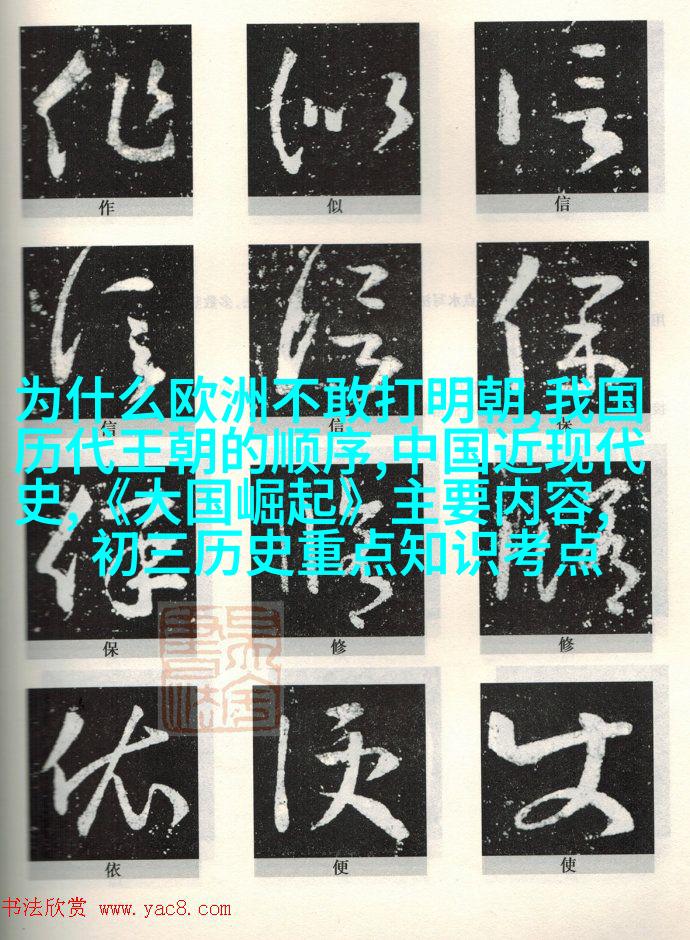 作 似 信
作 似 信
信 信 保
信 信 保
为什么欧洲不敢打明朝,我国
历代王朝的顺序,中国近现代
史,《大国崛起》主要内容,
初三历史重点知识考点
保 修 修
保 修 修
依 便 使
依 便 使
书法欣赏 www.yac8.com